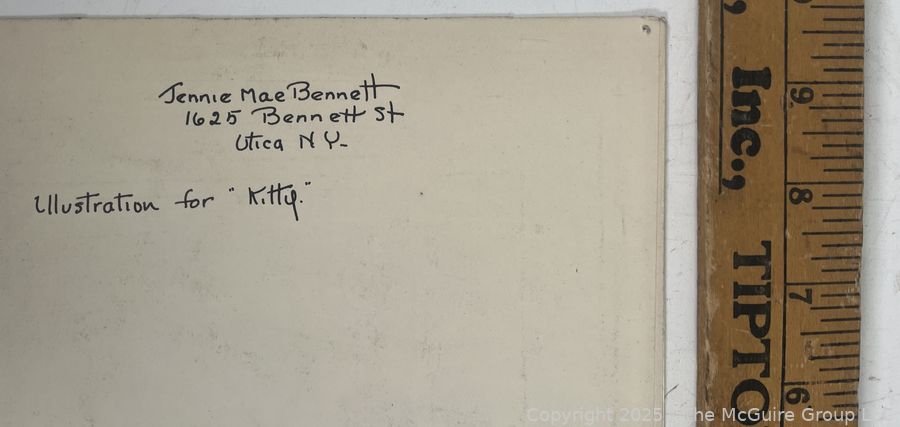 Jennie Mae Bennett
1625 Bennett St
Utica N Y-
Illustration for "Kitty."
Inc.,
TIPTO
9
8
7
6
Copyright 2025 The McGuire Group L